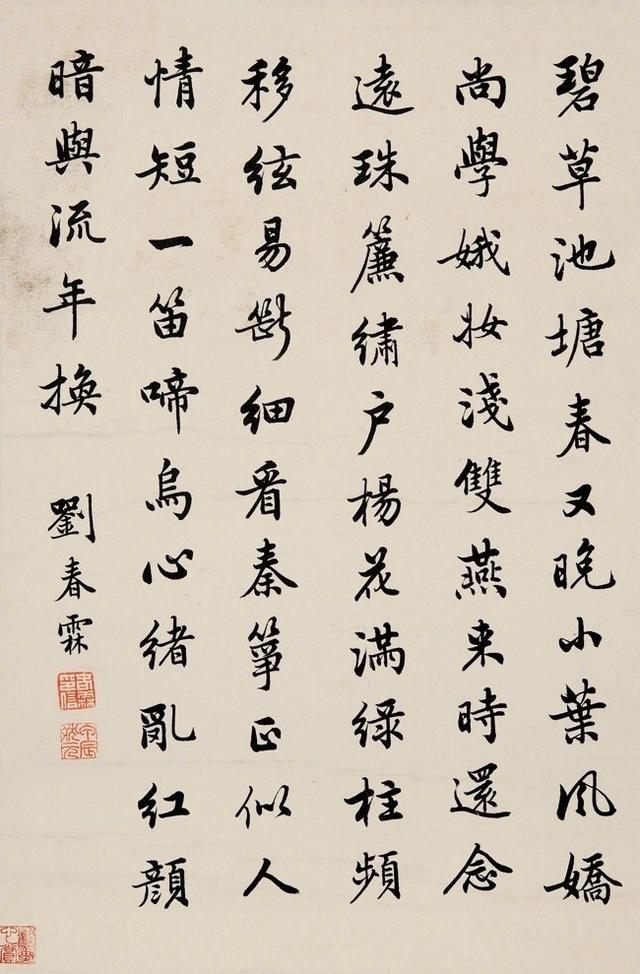 碧草池塘春又晚小葉風嬌
尚學娥妝淺雙燕来時還念
遠珠簾繡户楊花滿緑柱頻
移絃易斷細看秦箏正似人
情短一笛啼烏心緒亂紅顔
暗與流年換
劉春霖